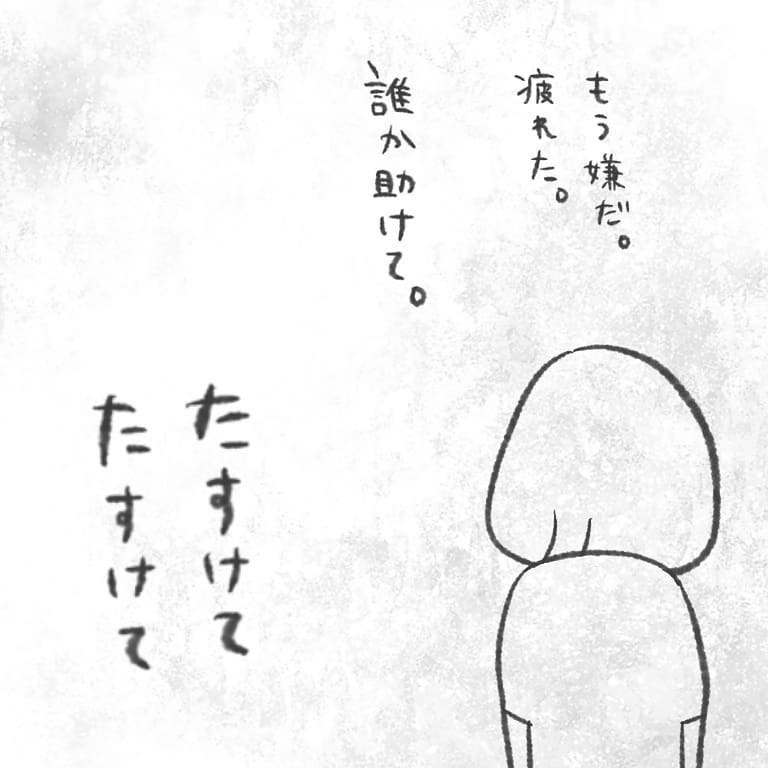 もう嫌だ。
疲れた。
誰か助けて。
たすけて
たすけて